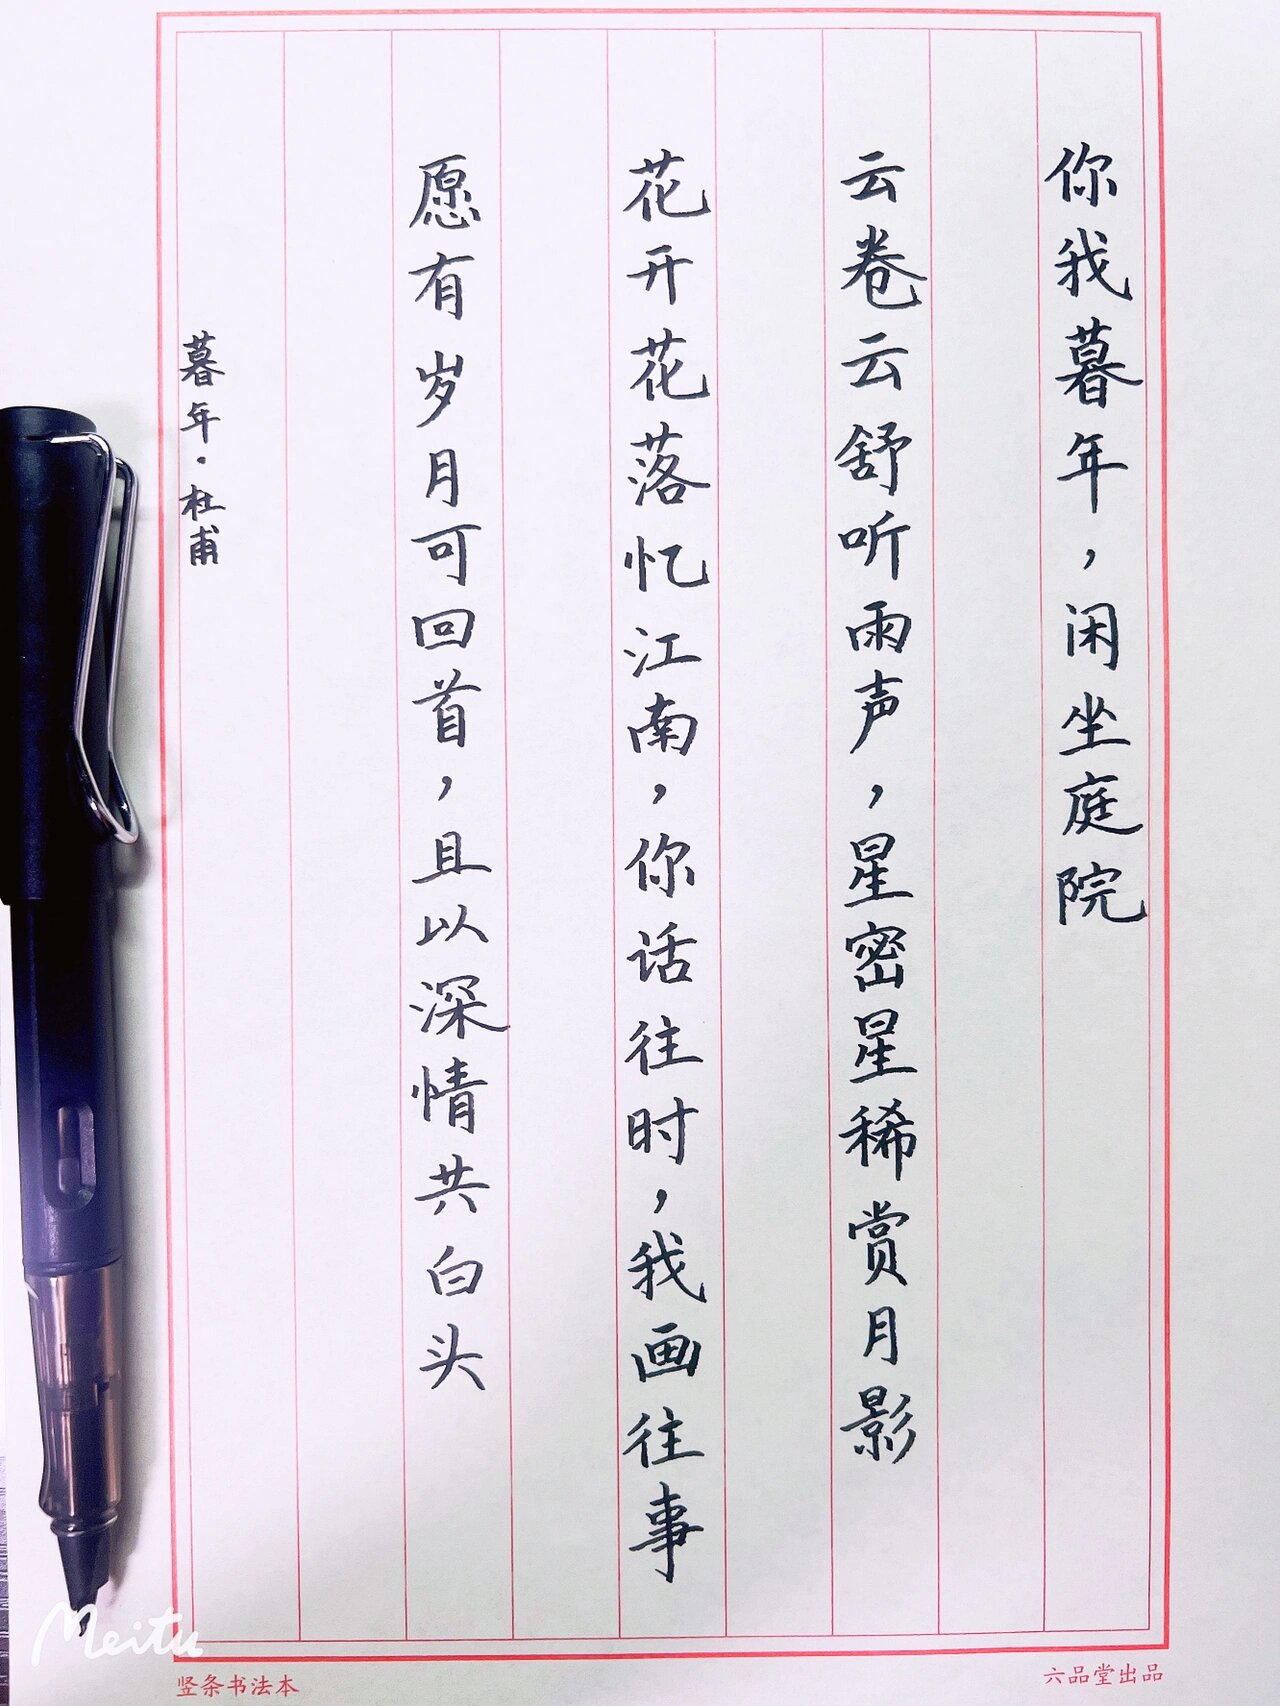 你我暮年，闲坐庭院
云卷云舒听雨声，星密星稀赏月影
花开花落忆江南，你话往时，我画往事
愿有岁月可回首，且以深情共白头
暮年·杜甫
竖条书法本
六品堂出品
Meitu